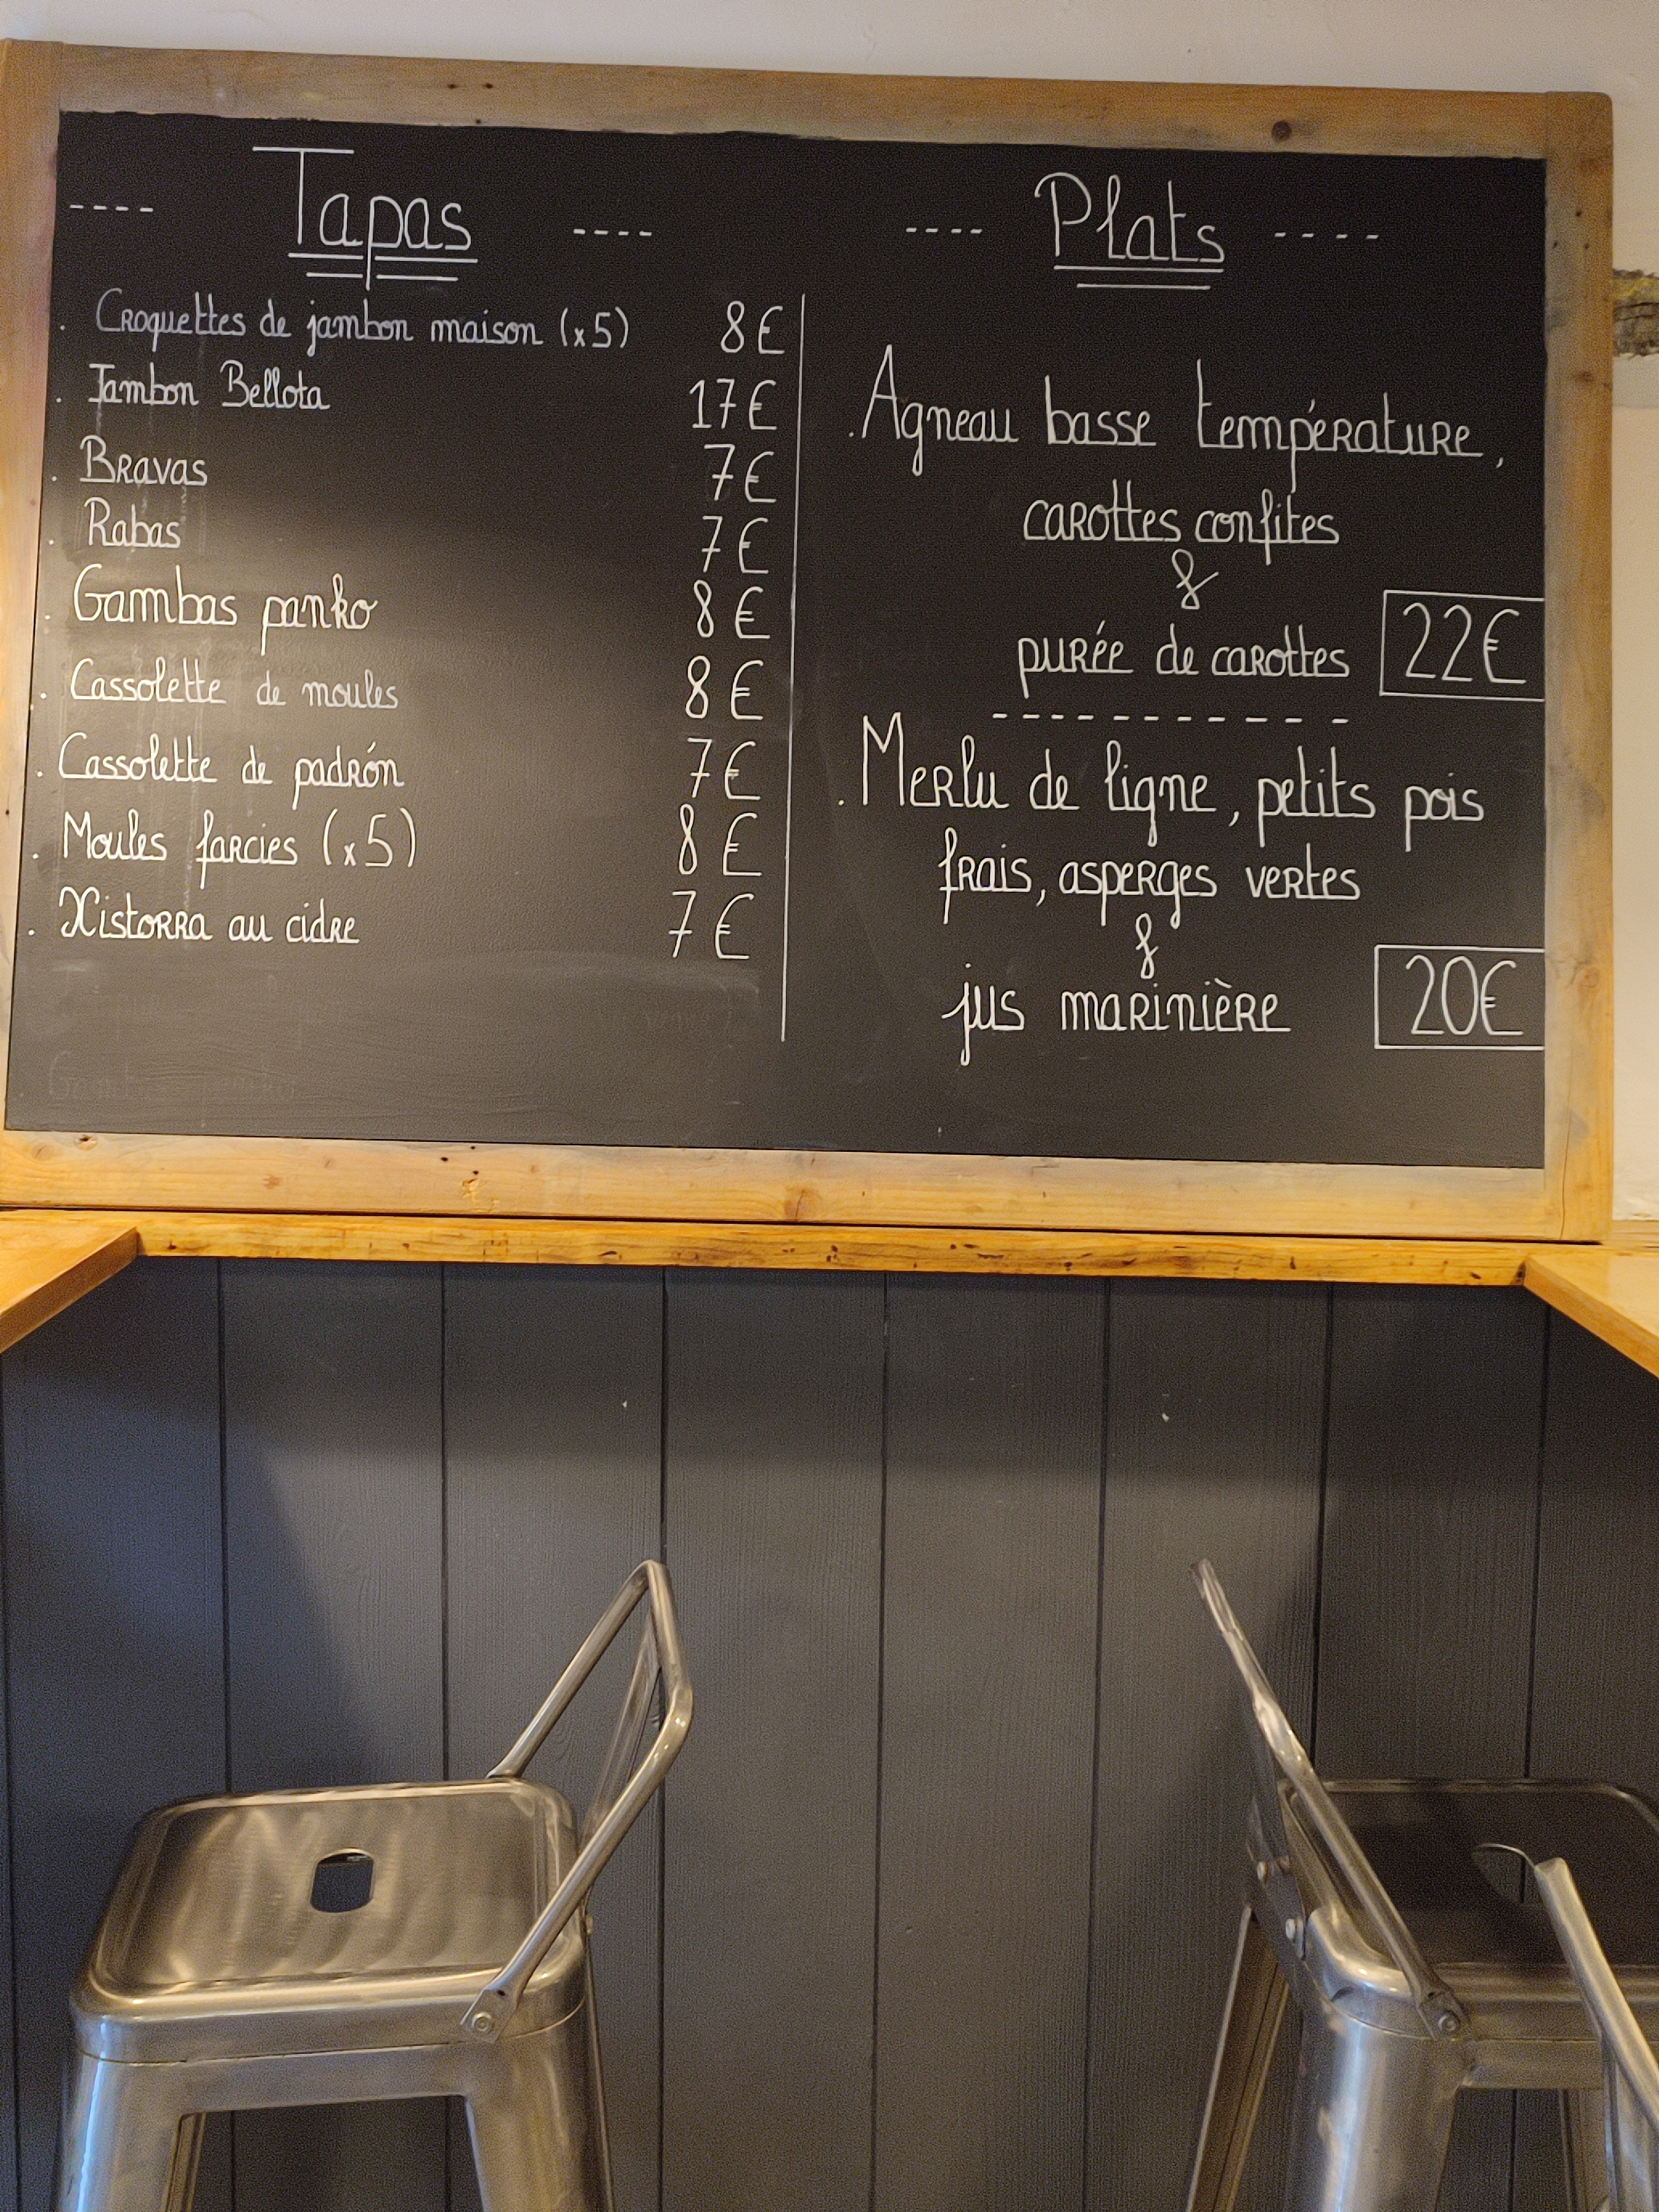 ---- Tapas ----
. Croquettes de jambon maison (x5) 8€
. Jambon Bellota 17€
. Bravas 7€
. Rabas 7€
. Gambas panko 8€
. Cassolette de moules 8€
. Cassolette de padrón 7€
. Moules farcies (x5) 8€
. Xistorra au cidre 7€
---- Plats ----
. Agneau basse température,
carottes confites
&
purée de carottes 22€
-----------
. Merlu de ligne, petits pois
frais, asperges vertes
&
jus marinière 20€